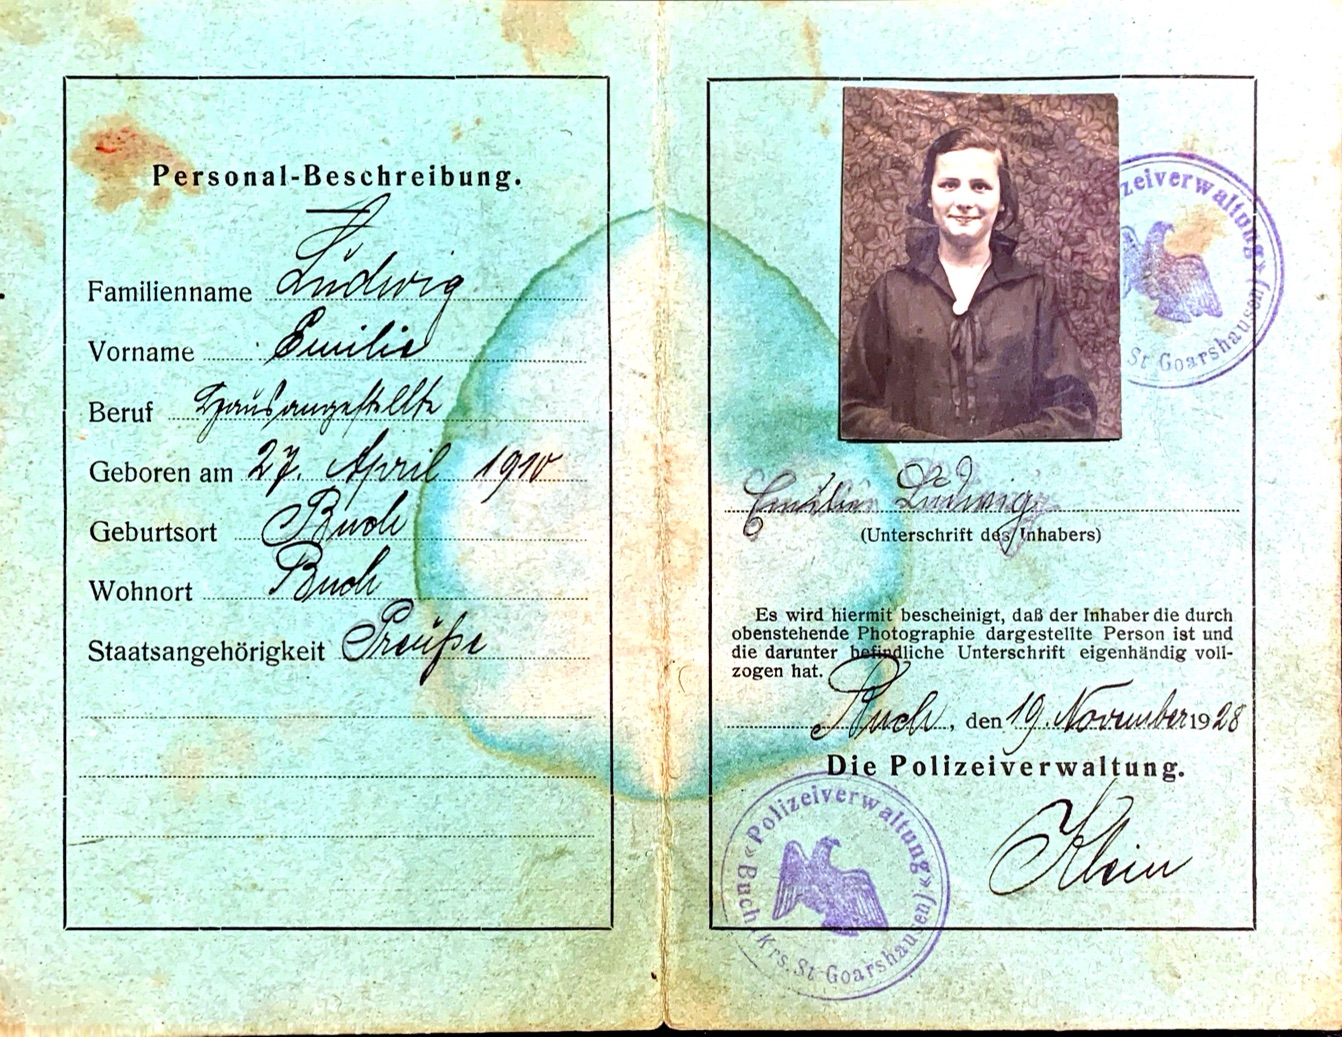 Personal-Beschreibung.
Familienname Ludwig
Vorname Emilie
Beruf Hausangestellte
Geboren am 27. April 1910
Geburtsort Buch
Wohnort Buch
Staatsangehörigkeit Preuße
zeiverwaltung» (
St Goarshausen)
Emilie Ludwig
(Unterschrift des Inhabers)
Es wird hiermit bescheinigt, daß der Inhaber die durch
obenstehende Photographie dargestellte Person ist und
die darunter befindliche Unterschrift eigenhändig voll-
zogen hat.
Buch, den 19. November 1928
Die Polizeiverwaltung.
Klein
«Polizeiverwaltung»
Buch, Krs. St Goarshausen)